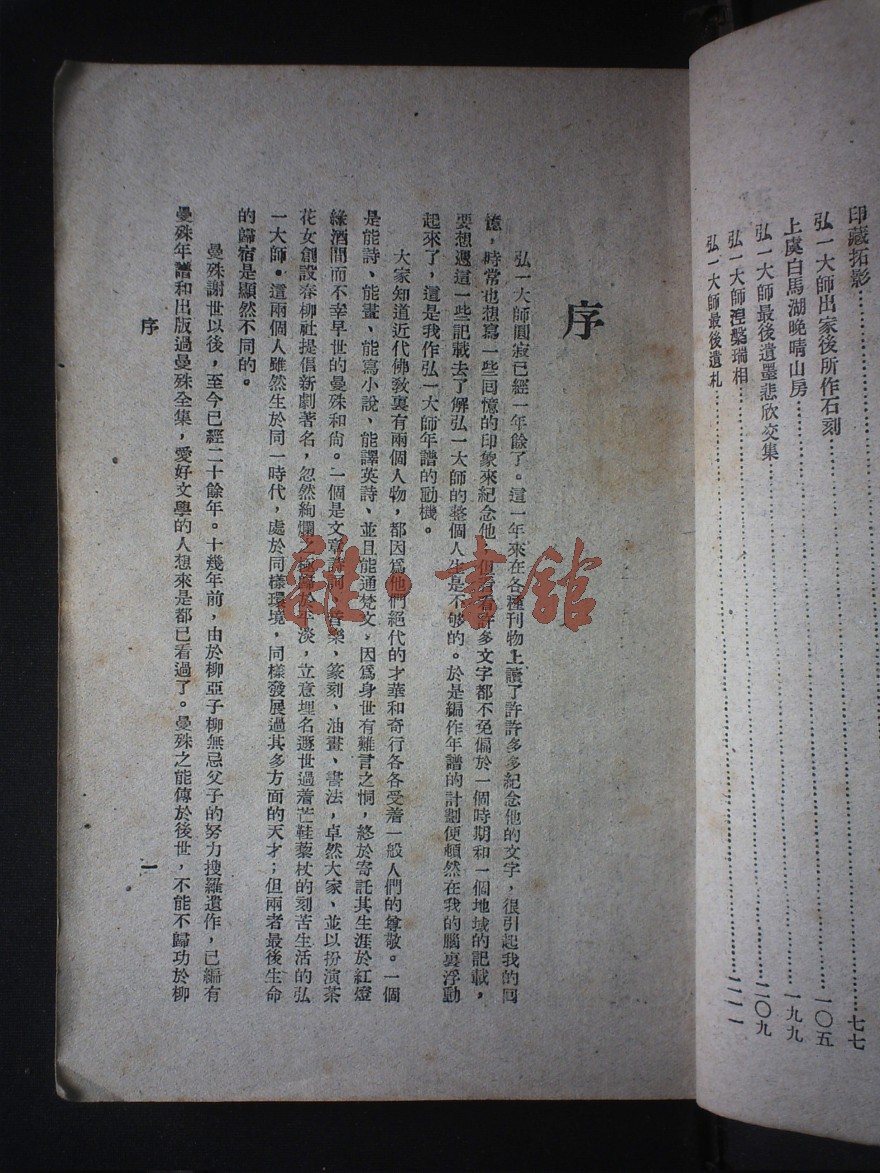 印藏拓影………………七七
弘一大師出家後所作石刻………………一〇五
上虞白馬湖晚晴山房………………一九九
弘一大師最後遺墨悲欣交集………………二〇九
弘一大師涅槃瑞相………………二一一
弘一大師最後遺札………………
序
弘一大師圓寂已經一年餘了。這一年來在各種刊物上讀了許許多多紀念他的文字，很引起我的回
憶，時常也想寫一些回憶的印象來紀念他，但看看許多文字都不免偏於一個時期和一個地域的記載，
要想憑這一些記載去了解弘一大師的整個人生是不够的。於是編作年譜的計劃便頓然在我的腦裏浮動
起來了，這是我作弘一大師年譜的動機。
大家知道近代佛敎裏有兩個人物，都因爲他們絕代的才華和奇行各各受着一般人們的尊敬。一個
是能詩、能畫、能寫小說、能譯英詩、並且能通梵文，因爲身世有難言之恫，終於寄託其生涯於紅燈
綠酒間而不幸早世的曼殊和尙。一個是文章詩詞、音樂，篆刻、油畫、書法，卓然大家、並以扮演茶
花女創設春柳社提倡新劇著名，忽然絢爛之極歸於平淡，立意埋名遯世過着芒鞋藜杖的刻苦生活的弘
一大師。這兩個人雖然生於同一時代，處於同樣環境，同樣發展過其多方面的天才；但兩者最後生命
的歸宿是顯然不同的。
曼殊謝世以後，至今已經二十餘年。十幾年前，由於柳亞子柳無忌父子的努力搜羅遺作，已編有
曼殊年譜和出版過曼殊全集，愛好文學的人想來是都已看過了。曼殊之能傳於後世，不能不歸功於柳
序　一
雜·書館